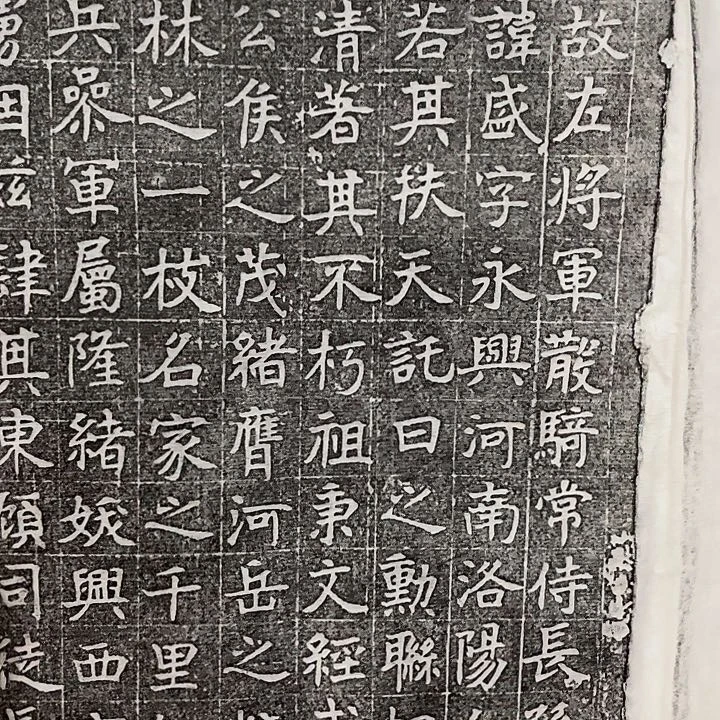 故左將軍散騎常侍長
諱盛字永興河南洛陽
若其扶天託日之勳聯
清著其不朽祖秉文經
公侯之茂緒膺河岳之
林之一枝名家之千里
兵喿軍屬隆緒娥興西
田茲肆其東頓司徒